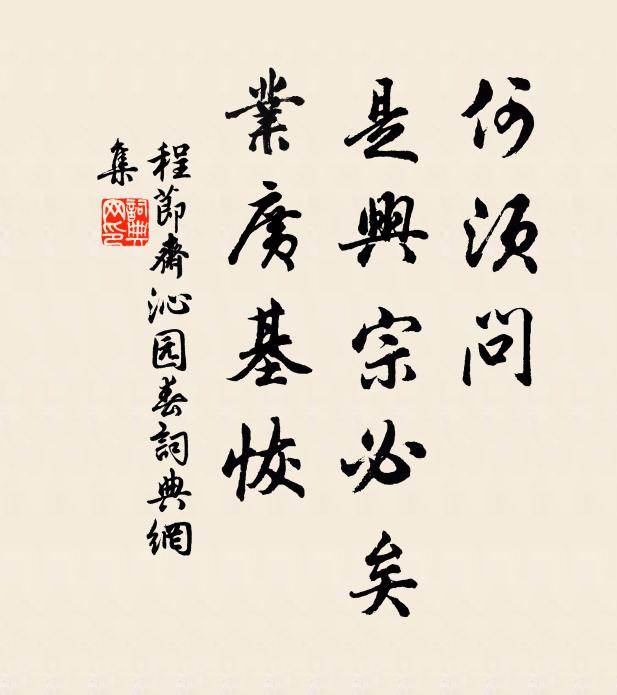 何須問
是興宗必矣
業廣基恢
程節齋沁园春詞典網
集
詞典網印